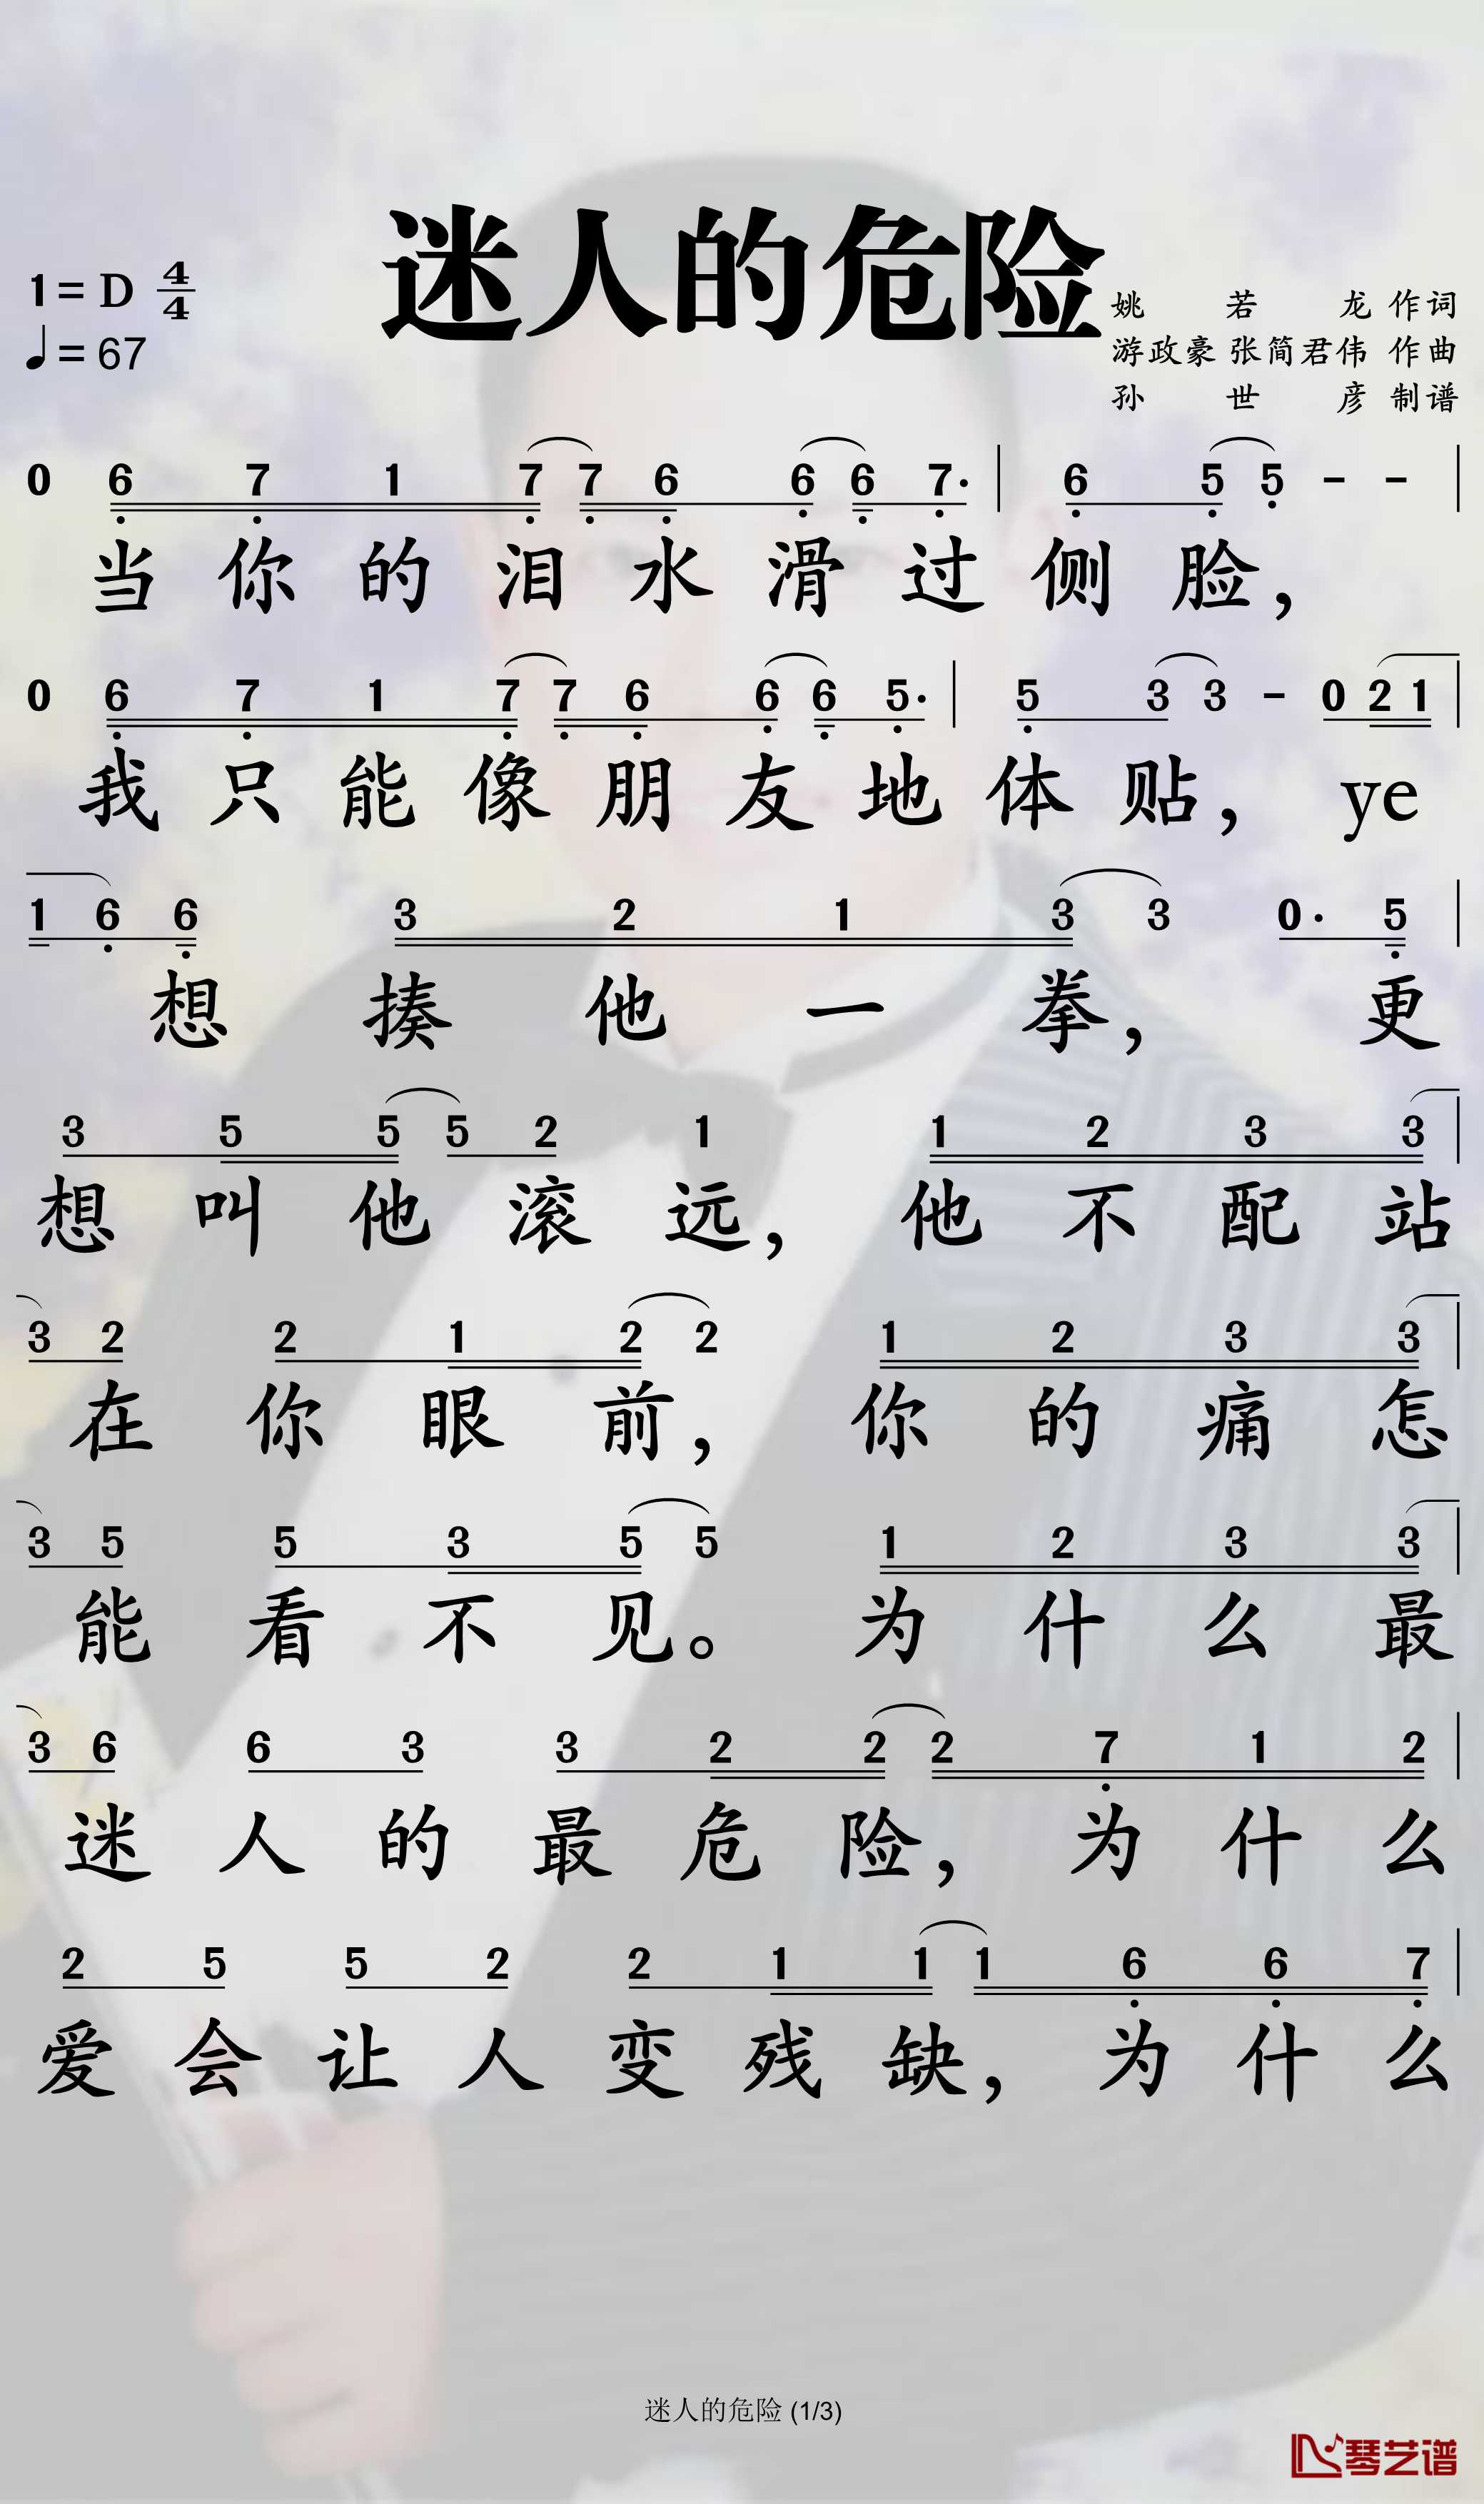 迷人的危险
1= D 4/4
♩= 67
姚若龙 作词
游政豪 张简君伟 作曲
孙世彦 制谱
0 6 7 1 7 7 6 6 6 7· | 6 5 5 - - |
当你的泪水滑过侧脸，
0 6 7 1 7 7 6 6 6 5· | 5 3 3 - 0 2 1 |
我只能像朋友地体贴， ye
1 6 6 3 2 1 3 3 0· 5 |
想揍他一拳， 更
3 5 5 5 2 1 1 2 3 3 |
想叫他滚远， 他不配站
3 2 2 1 2 2 1 2 3 3 |
在你眼前， 你的痛怎
3 5 5 3 5 5 1 2 3 3 |
能看不见。 为什么最
3 6 6 3 3 2 2 2 7 1 2 |
迷人的最危险， 为什么
2 5 5 2 2 1 1 1 6 6 7 |
爱会让人变残缺， 为什么
迷人的危险 (1/3)
琴艺谱